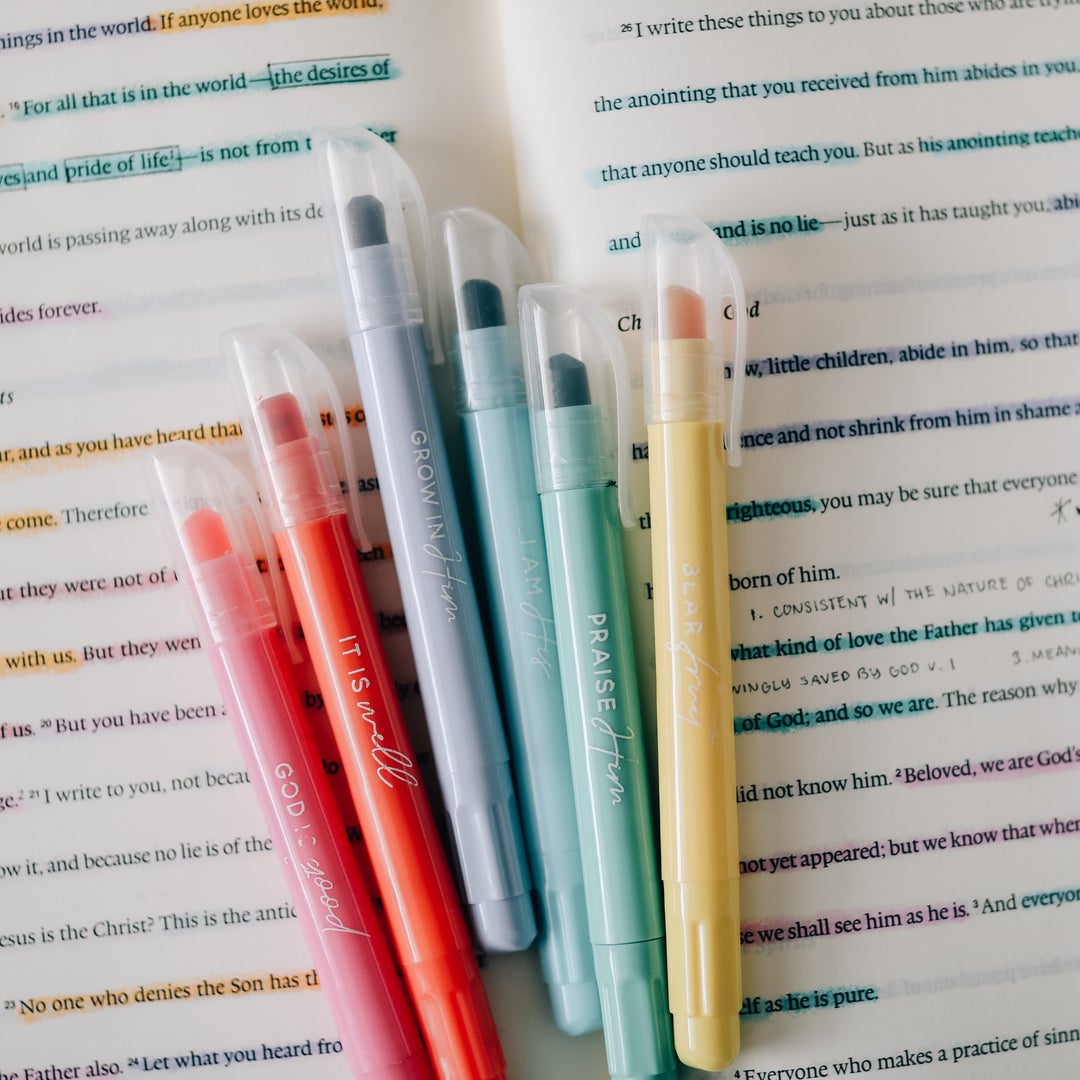 things in the world. If anyone loves the world,
18 For all that is in the world—the desires of
and pride of life—is not from
world is passing away along with its
forever.
and as you have heard that
come. Therefore
they were not of
with us. But they
of us. 20 But you have been
21 I write to you, not
it, and because no lie is of the
the Christ? This is the
23 No one who denies the Son has
Father also. 24 Let what you heard
26 I write these things to you about those who are
the anointing that you received from him abides in you,
that anyone should teach you. But as his anointing
and is no lie—just as it has taught you,
little children, abide in him, so that
and not shrink from him in shame
righteous, you may be sure that everyone
born of him.
1. CONSISTENT W/ THE NATURE OF
what kind of love the Father has given
SAVED BY GOD V. 1 3.
of God; and so we are. The reason why
did not know him. 2 Beloved, we are God's
not yet appeared; but we know that when
we shall see him as he is. 3 And
as he is pure.
4 Everyone who makes a practice of
GOD IS good
IT IS well
GROW IN Him
I AM His
PRAISE Him
BEAR fruit